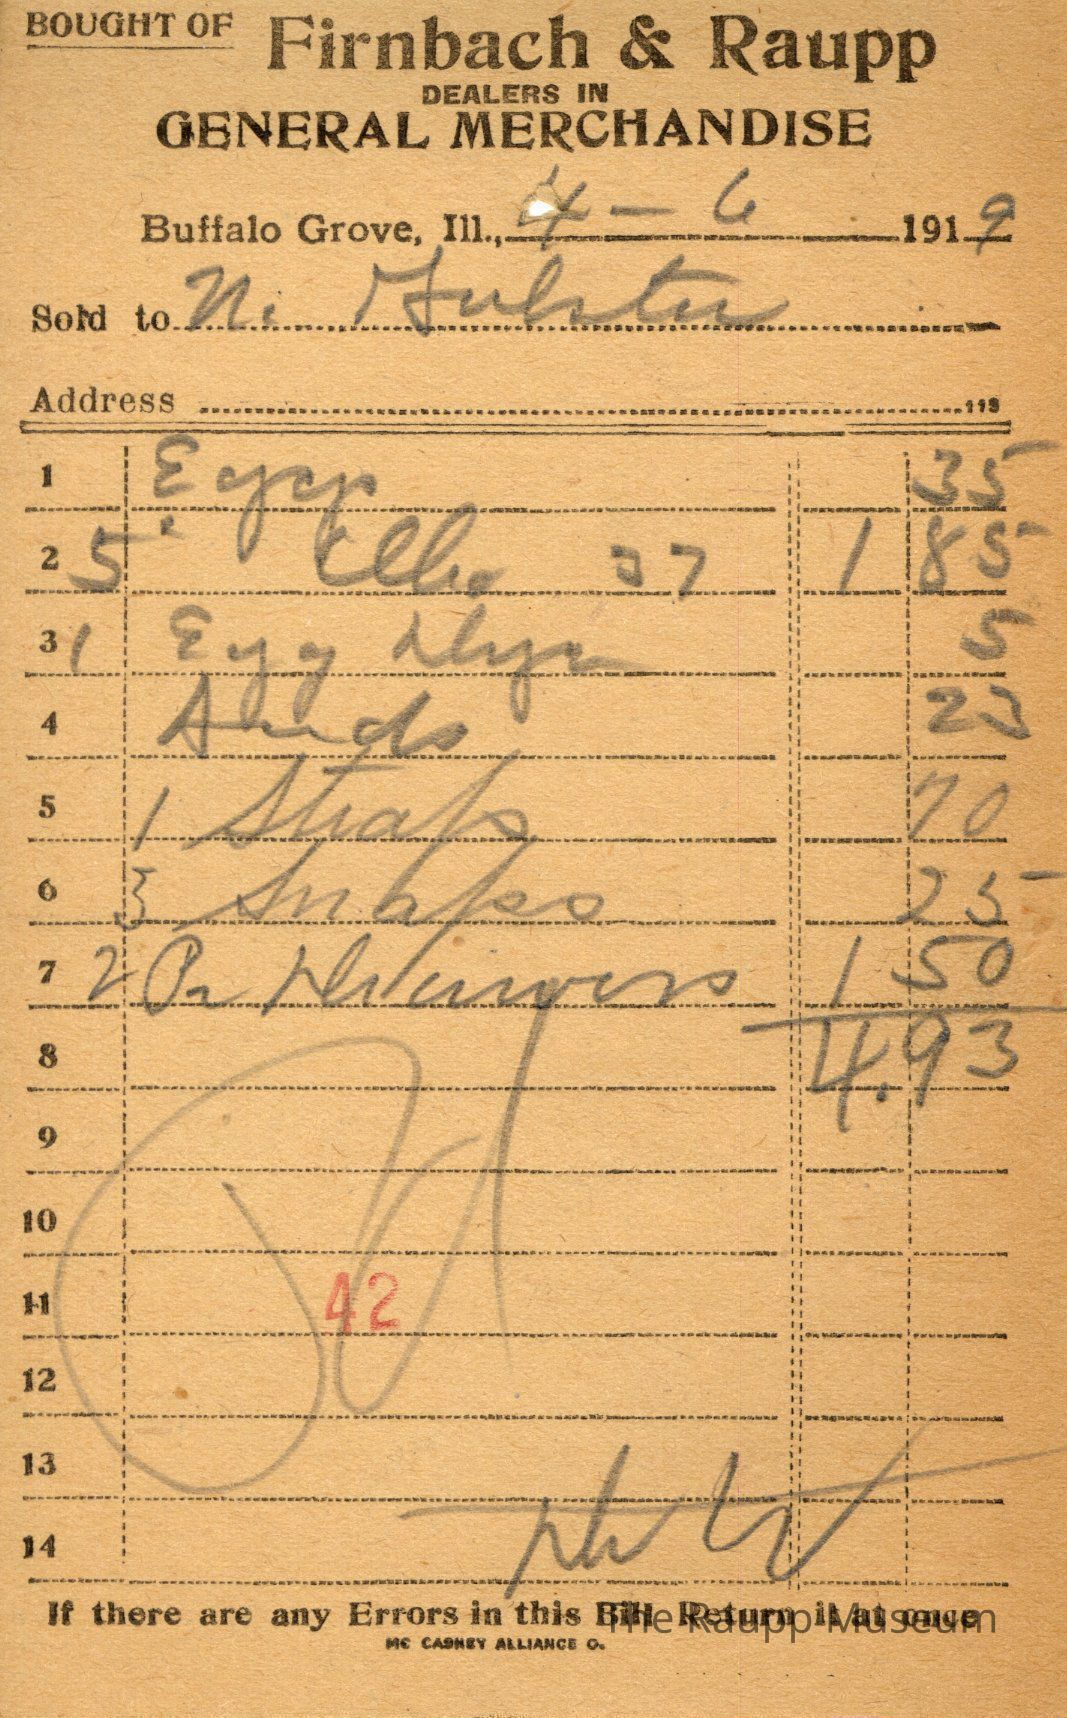 BOUGHT OF Firnbach & Raupp
DEALERS IN
GENERAL MERCHANDISE
Buffalo Grove, Ill., 4 - 6 1919
Sold to N.
Address 113
1 Eggs 35
2 5 37 1 85
3 1 Egg Dye 5
4 23
5 1 Strap 70
6 3 Snaps 25
7 2 Pr 1 50
8 4.93
9
10
11 42
12
13
14
If there are any Errors in this Bill Return it at once
The Raupp Museum
MC CASKEY ALLIANCE O.